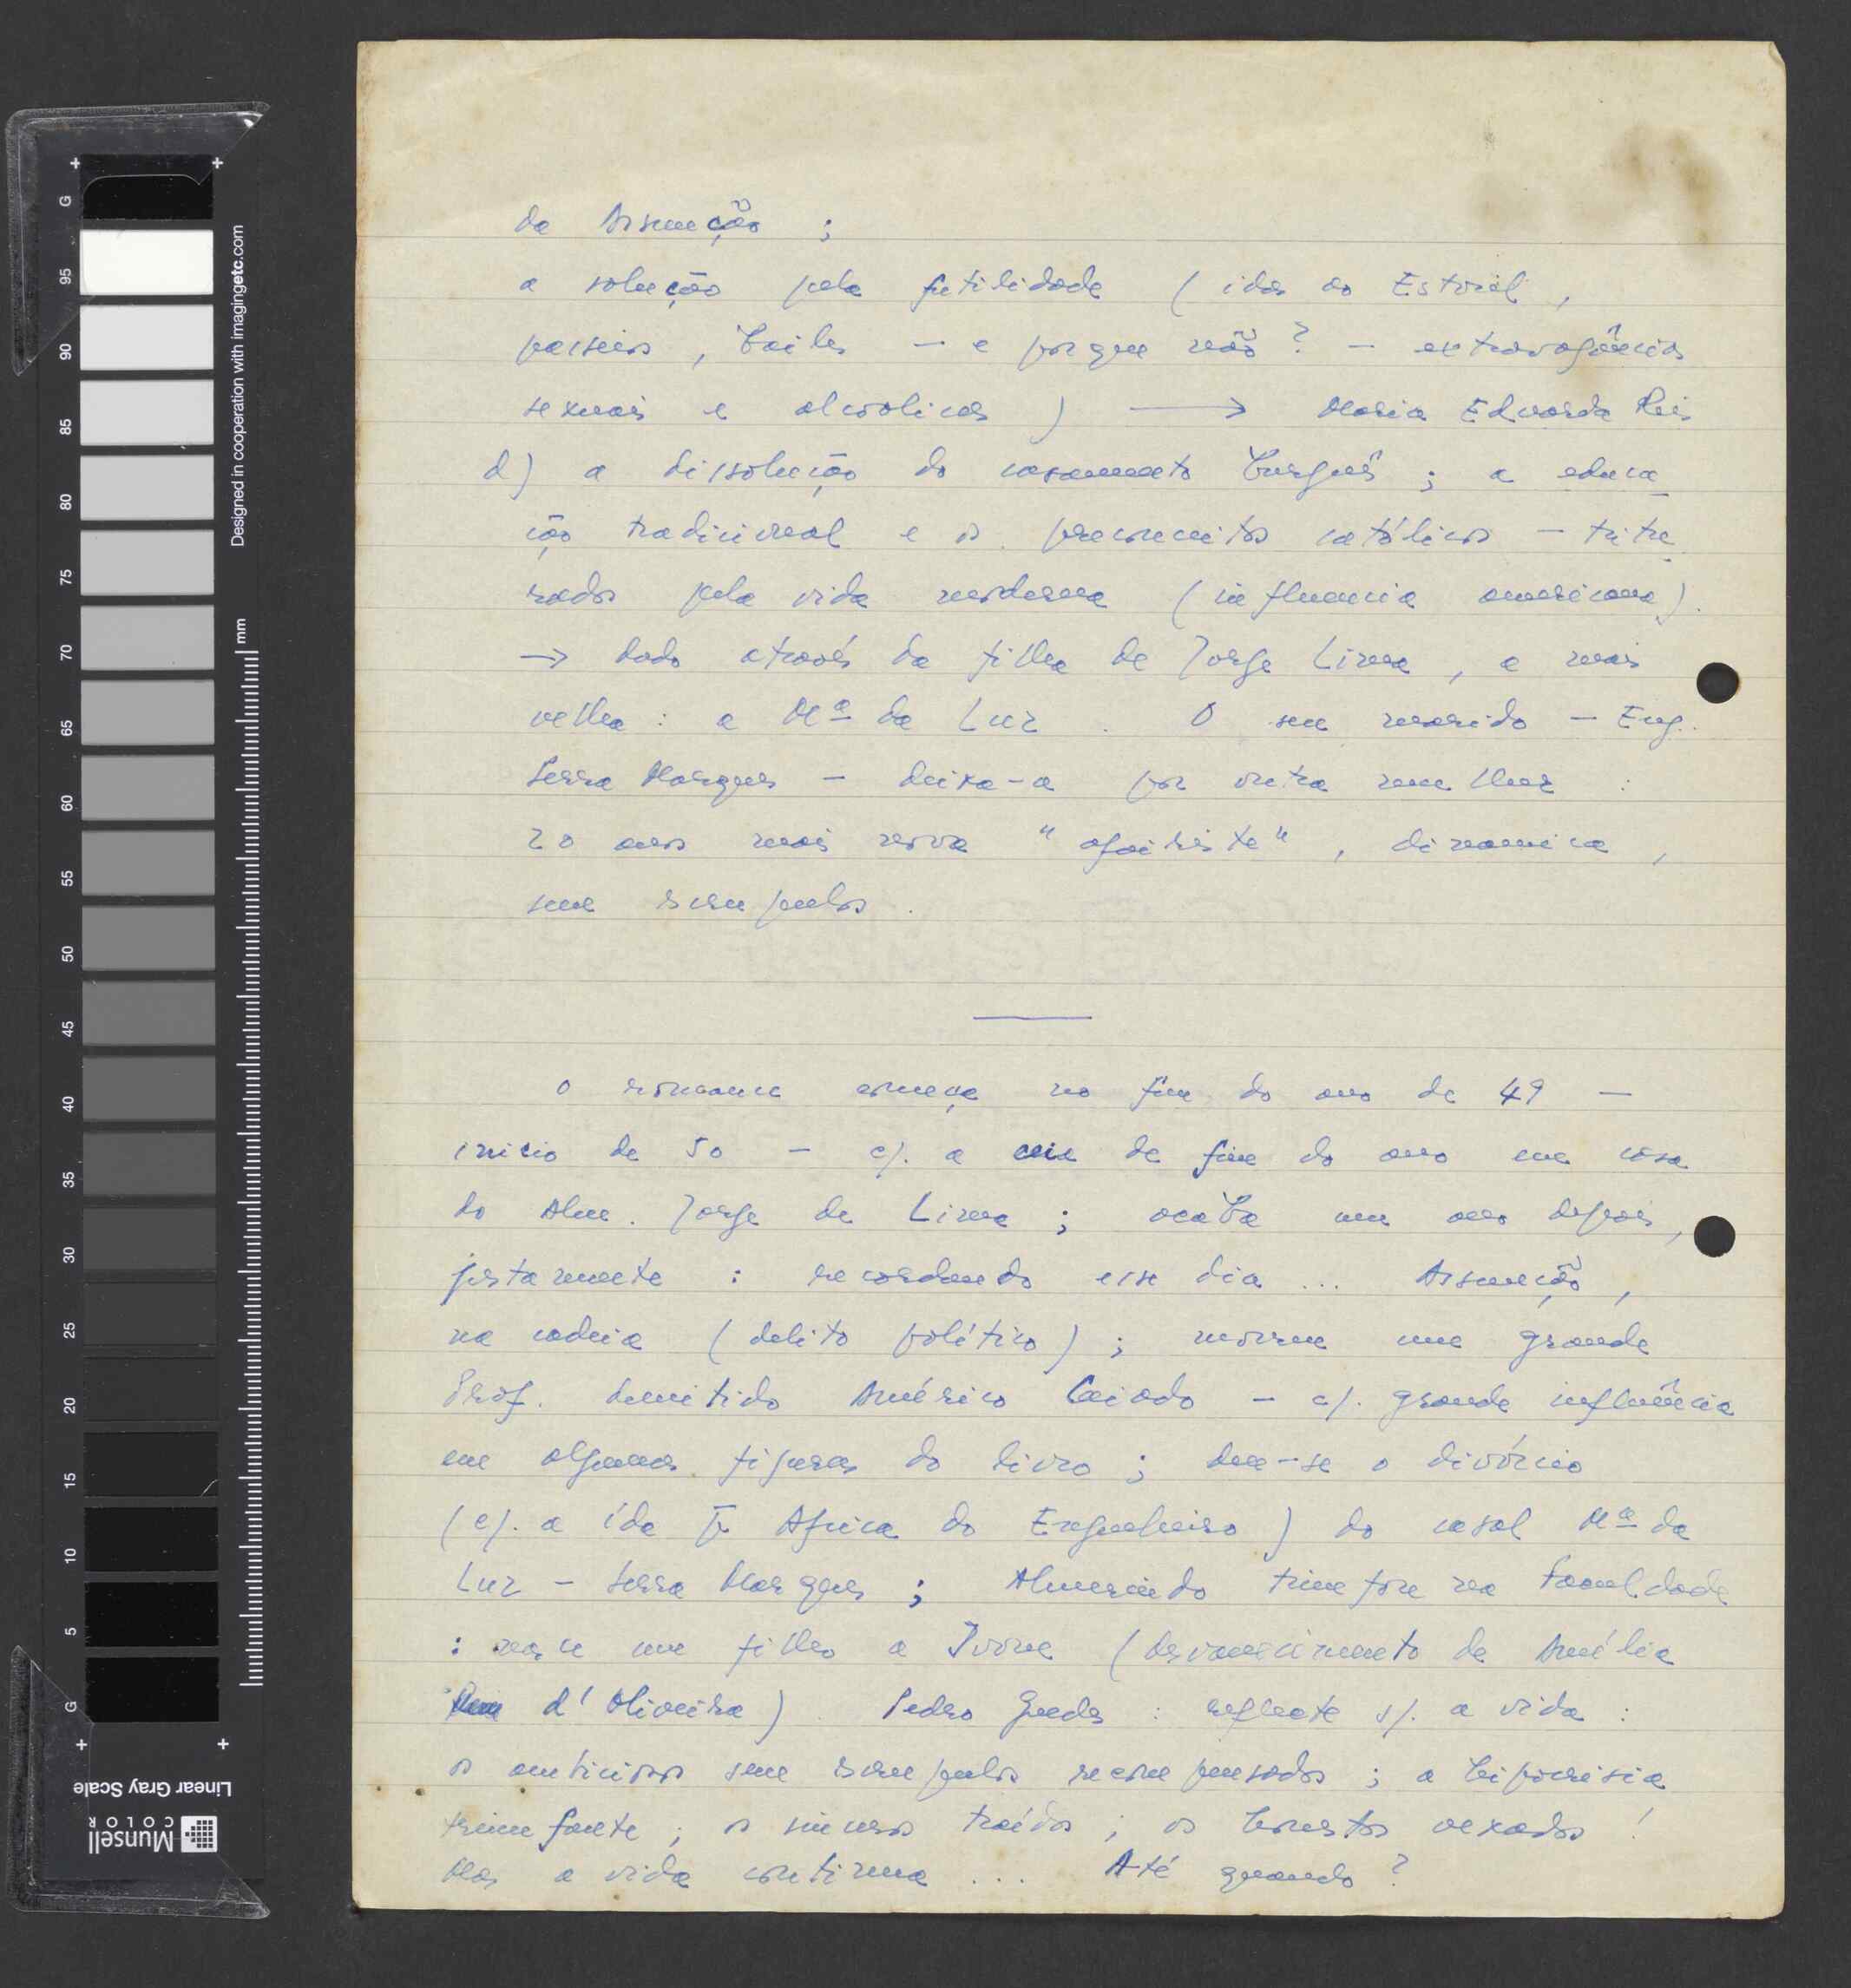 da Assunção ;
a solução pela futilidade ( idas ao Estoril ,
passeios , bailes — e porque não ? — extravagâncias
sexuais e alcoolicas ) → Maria Eduarda Reis
d) a dissolução do casamento burguês ; a educa
ção tradicional e os preconceitos católicos — tritu
rados pela vida moderna ( influencia americana ).
→ dado através da filha de Jorge Lima , a mais
velha : a Mª da Luz . O seu marido — Eng.
Serra Marques — deixa-a por outra mulher :
20 anos mais nova " afairiste " , dinamica ,
sem escrupulos .
O romance começa no fim do ano de 49 —
inicio de 50 — c/. a ceia de fim do ano em casa
do Alm. Jorge de Lima ; acaba um ano depois ,
justamente : recordando esse dia ... Assunção ,
na cadeia ( delito político ) ; morreu um grande
Prof. demitido Américo Caiado — c/. grande influência
em algumas figuras do livro ; deu-se o divórcio
( c/. a ída Africa do Engenheiro ) do casal Mª da
Luz — Serra Marques ; Almerindo triunfou na Faculdade
: nasce um filho a Ivone ( desvanecimento de Amélia
d' Oliveira ) . Pedro Guedes : reflecte s/. a vida :
os ambiciosos sem escrupulos recompensados ; a hipocrisia
triunfante ; os sinceros traídos ; os honestos vexados !
Mas a vida continua ... Até quando ?
Designed in cooperation with imagingetc.com
mm
G
95
90
85
80
75
70
65
60
55
50
45
40
35
30
25
20
15
10
5
G
Linear Gray Scale
Munsell
COLOR